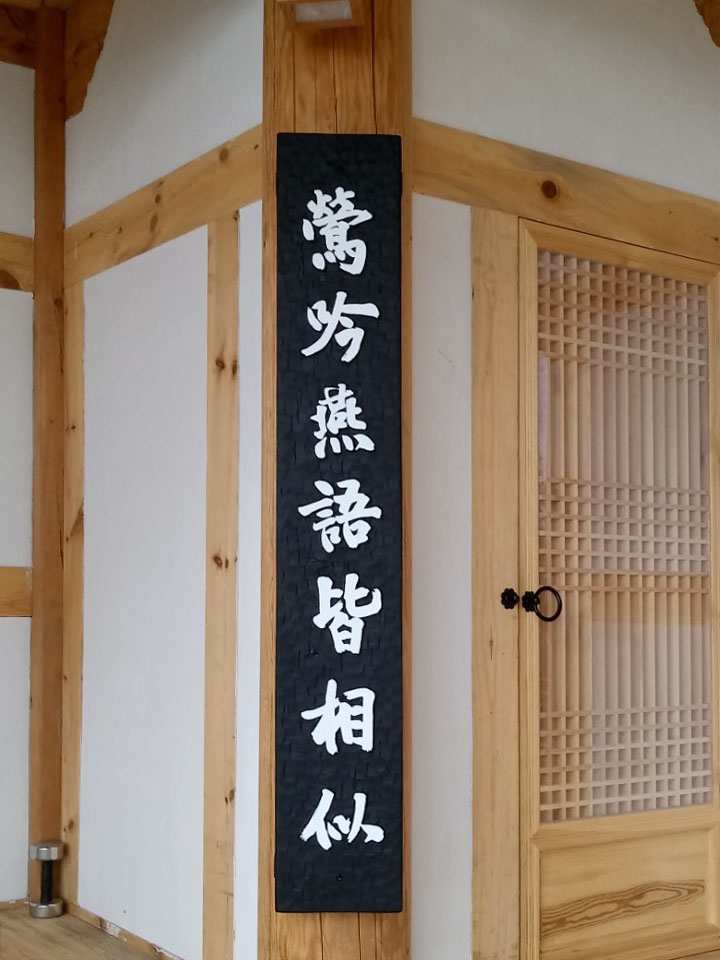 鶯吟燕語皆相似